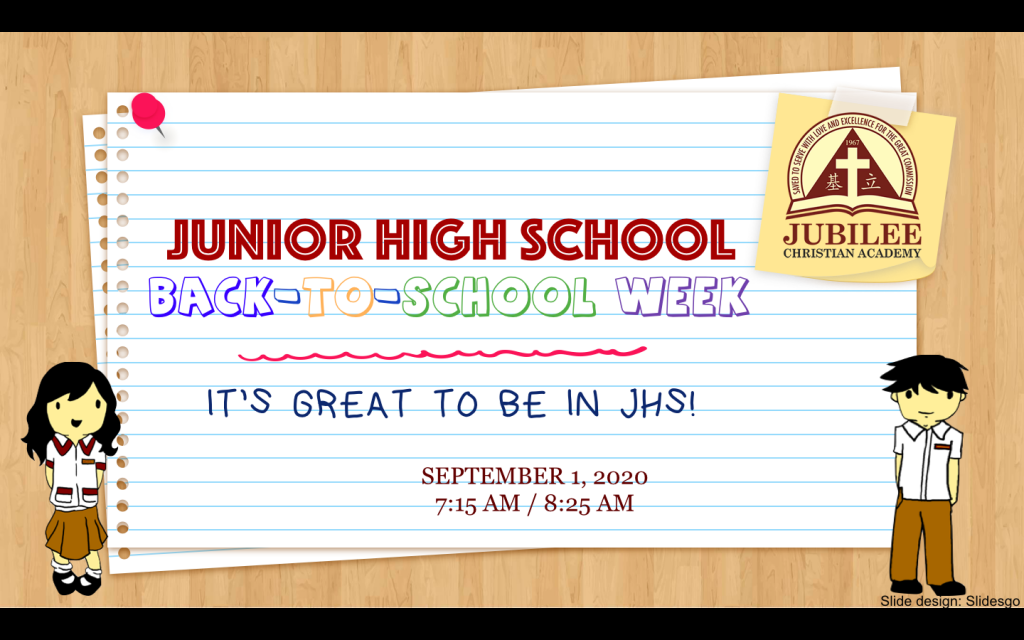 JUNIOR HIGH SCHOOL
BACK-TO-SCHOOL WEEK
IT'S GREAT TO BE IN JHS!
SEPTEMBER 1, 2020
7:15 AM / 8:25 AM
SAVED TO SERVE WITH LOVE AND EXCELLENCE FOR THE GREAT COMMISSION
1967
基 立
JUBILEE
CHRISTIAN ACADEMY
Slide design: Slidesgo